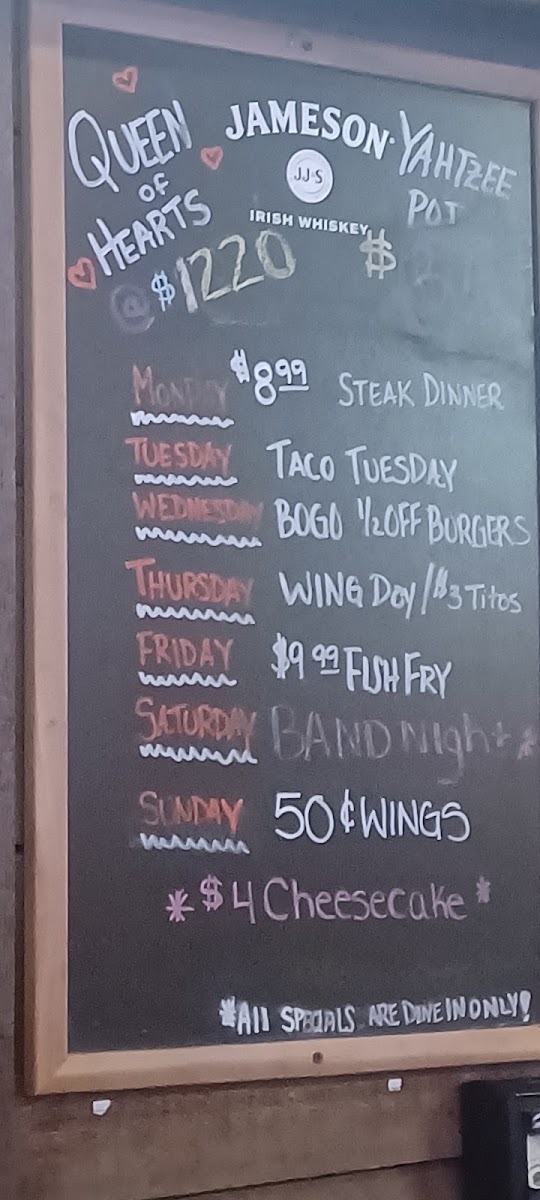 QUEEN
OF
HEARTS
@ $1220
JAMESON
JJ&S
IRISH WHISKEY
YAHTZEE
POT
$
MONDAY $8.99 STEAK DINNER
TUESDAY TACO TUESDAY
WEDNESDAY BOGO 1/2 OFF BURGERS
THURSDAY WING Day/$3 Titos
FRIDAY $9.99 FISH FRY
SATURDAY BAND Night *
SUNDAY 50¢ WINGS
*$4 Cheesecake*
*All SPECIALS ARE DINE IN ONLY!